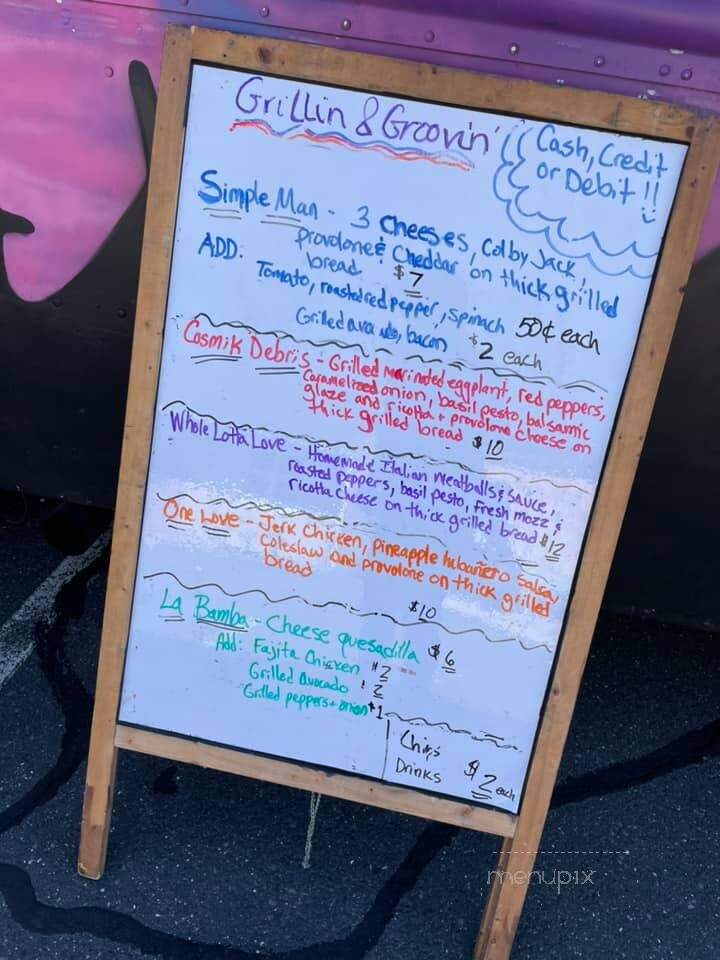 Grillin & Groovin'
Cash, Credit
or Debit!!
Simple Man - 3 Cheeses, Colby Jack,
provolone & Cheddar on thick grilled
bread $7
ADD:
Tomato, roasted red pepper, spinach 50¢ each
Grilled avocado, bacon $2 each
Cosmik Debris - Grilled marinated eggplant, red peppers,
caramelized onion, basil pesto, balsamic
glaze and ricotta + provolone cheese on
thick grilled bread $10
Whole Lotta Love - Homemade Italian Meatballs & sauce,
roasted peppers, basil pesto, fresh mozz &
ricotta cheese on thick grilled bread $12
One Love - Jerk Chicken, pineapple habañero salsa,
Coleslaw and provolone on thick grilled
bread
$10
La Bamba - Cheese quesadilla $6
Add: Fajita Chicken $2
Grilled avocado $2
Grilled peppers + onion $1
Chips
Drinks $2 each
menupix